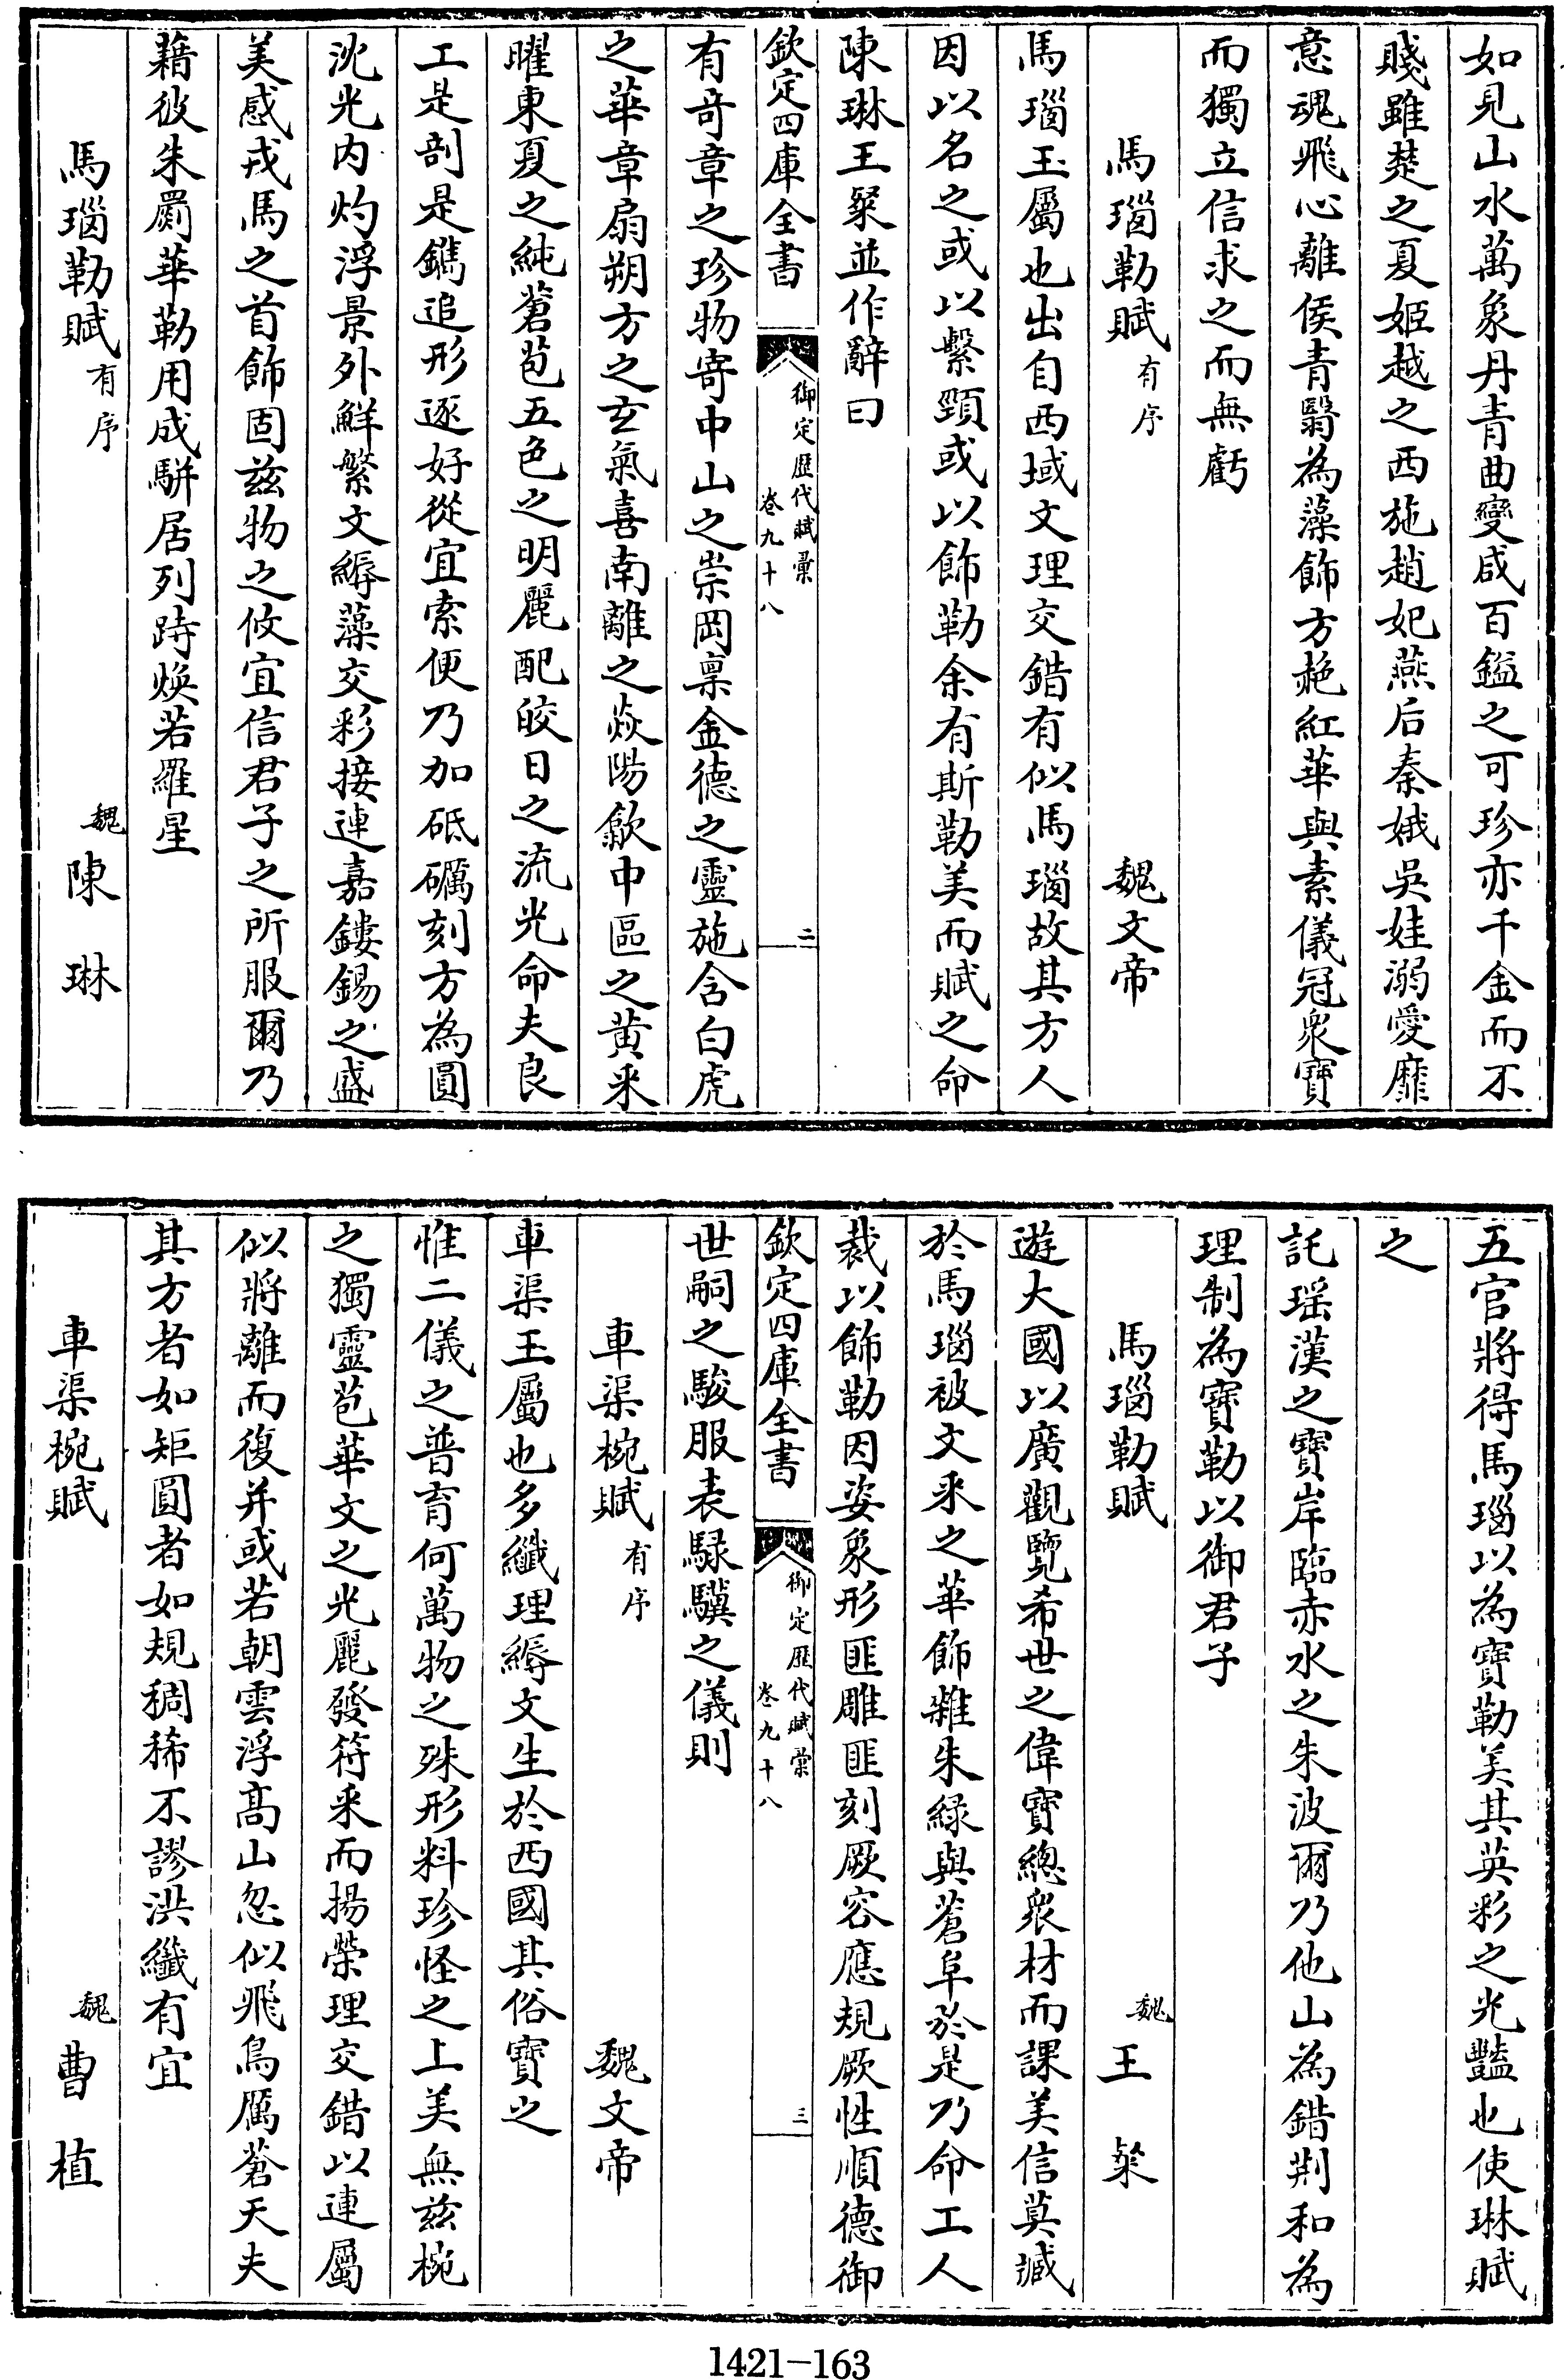 如見山水萬象丹青曲變咸百鎰之可珍亦千金而不
賤雖楚之夏姬越之西施趙妃燕后秦娥吳娃溺愛靡
意魂飛心離侯青翳為藻飾方赩紅華與素儀冠衆寶
而獨立信求之而無虧
馬瑙勒賦有序 魏文帝
馬瑙玉屬也出自西域文理交錯有似馬瑙故其方人
因以名之或以繫頸或以飾勒余有斯勒美而賦之命
陳琳王粲並作辭曰
欽定四庫全書 御定歷代賦彙 卷九十八 二
有奇章之珍物寄中山之崇岡稟金德之靈施含白虎
之華章扇朔方之玄氣喜南離之焱陽歙中區之黃采
曜東夏之純蒼苞五色之明麗配皎日之流光命夫良
工是剖是鐫追形逐好從宜索便乃加砥礪刻方為圓
沈光内灼浮景外鮮繁文縟藻交彩接連嘉鏤錫之盛
美感戎馬之首飾固兹物之攸宜信君子之所服爾乃
藉彼朱罽華勒用成駢居列跱煥若羅星
馬瑙勒賦有序 魏陳琳
五官將得馬瑙以為寶勒美其英彩之光豔也使琳賦
之
託瑶漢之寶岸臨赤水之朱波爾乃他山為錯荆和為
理制為寶勒以御君子
馬瑙勒賦 魏王粲
遊大國以廣觀覽希世之偉寶總衆材而課美信莫臧
於馬瑙被文采之華飾雜朱緑與蒼阜於是乃命工人
裁以飾勒因姿象形匪雕匪刻厥容應規厥性順德御
欽定四庫全書 御定歷代賦彙 卷九十八 三
世嗣之駿服表騄驥之儀則
車渠椀賦有序 魏文帝
車渠玉屬也多纖理縟文生於西國其俗寶之
惟二儀之普育何萬物之殊形料珍怪之上美無兹椀
之獨靈苞華文之光麗發符采而揚榮理交錯以連屬
似將離而復并或若朝雲浮髙山忽似飛鳥厲蒼天夫
其方者如矩圓者如規稠稀不謬洪纖有宜
車渠椀賦 魏曹植
1421-163